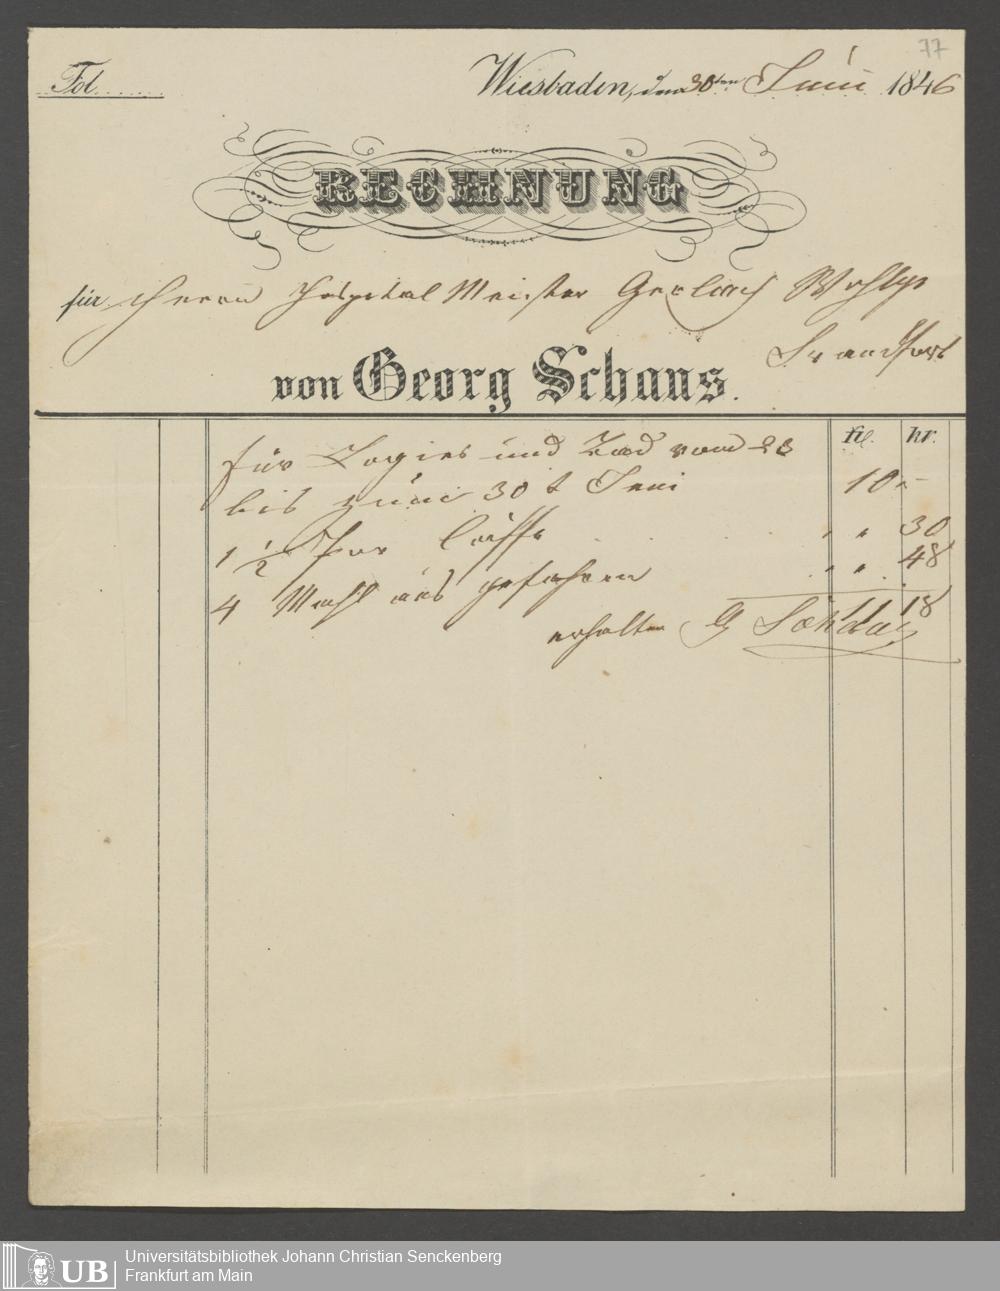 77
Fol. Wiesbaden, den 30ten Juni 1846
RECHNUNG
für Herrn Hospital Meister Gerlach Wohlg
Frandfort
von Georg Schaus.
fl. kr.
für Logies und Bad vom 23
bis zum 30 t Juni 10 "
1 1/2 Par Caiffe " " 30
4 Mahl aus gefahren " " 48
11 18
erhalten G Schaus
UB Universitätsbibliothek Johann Christian Senckenberg
Frankfurt am Main